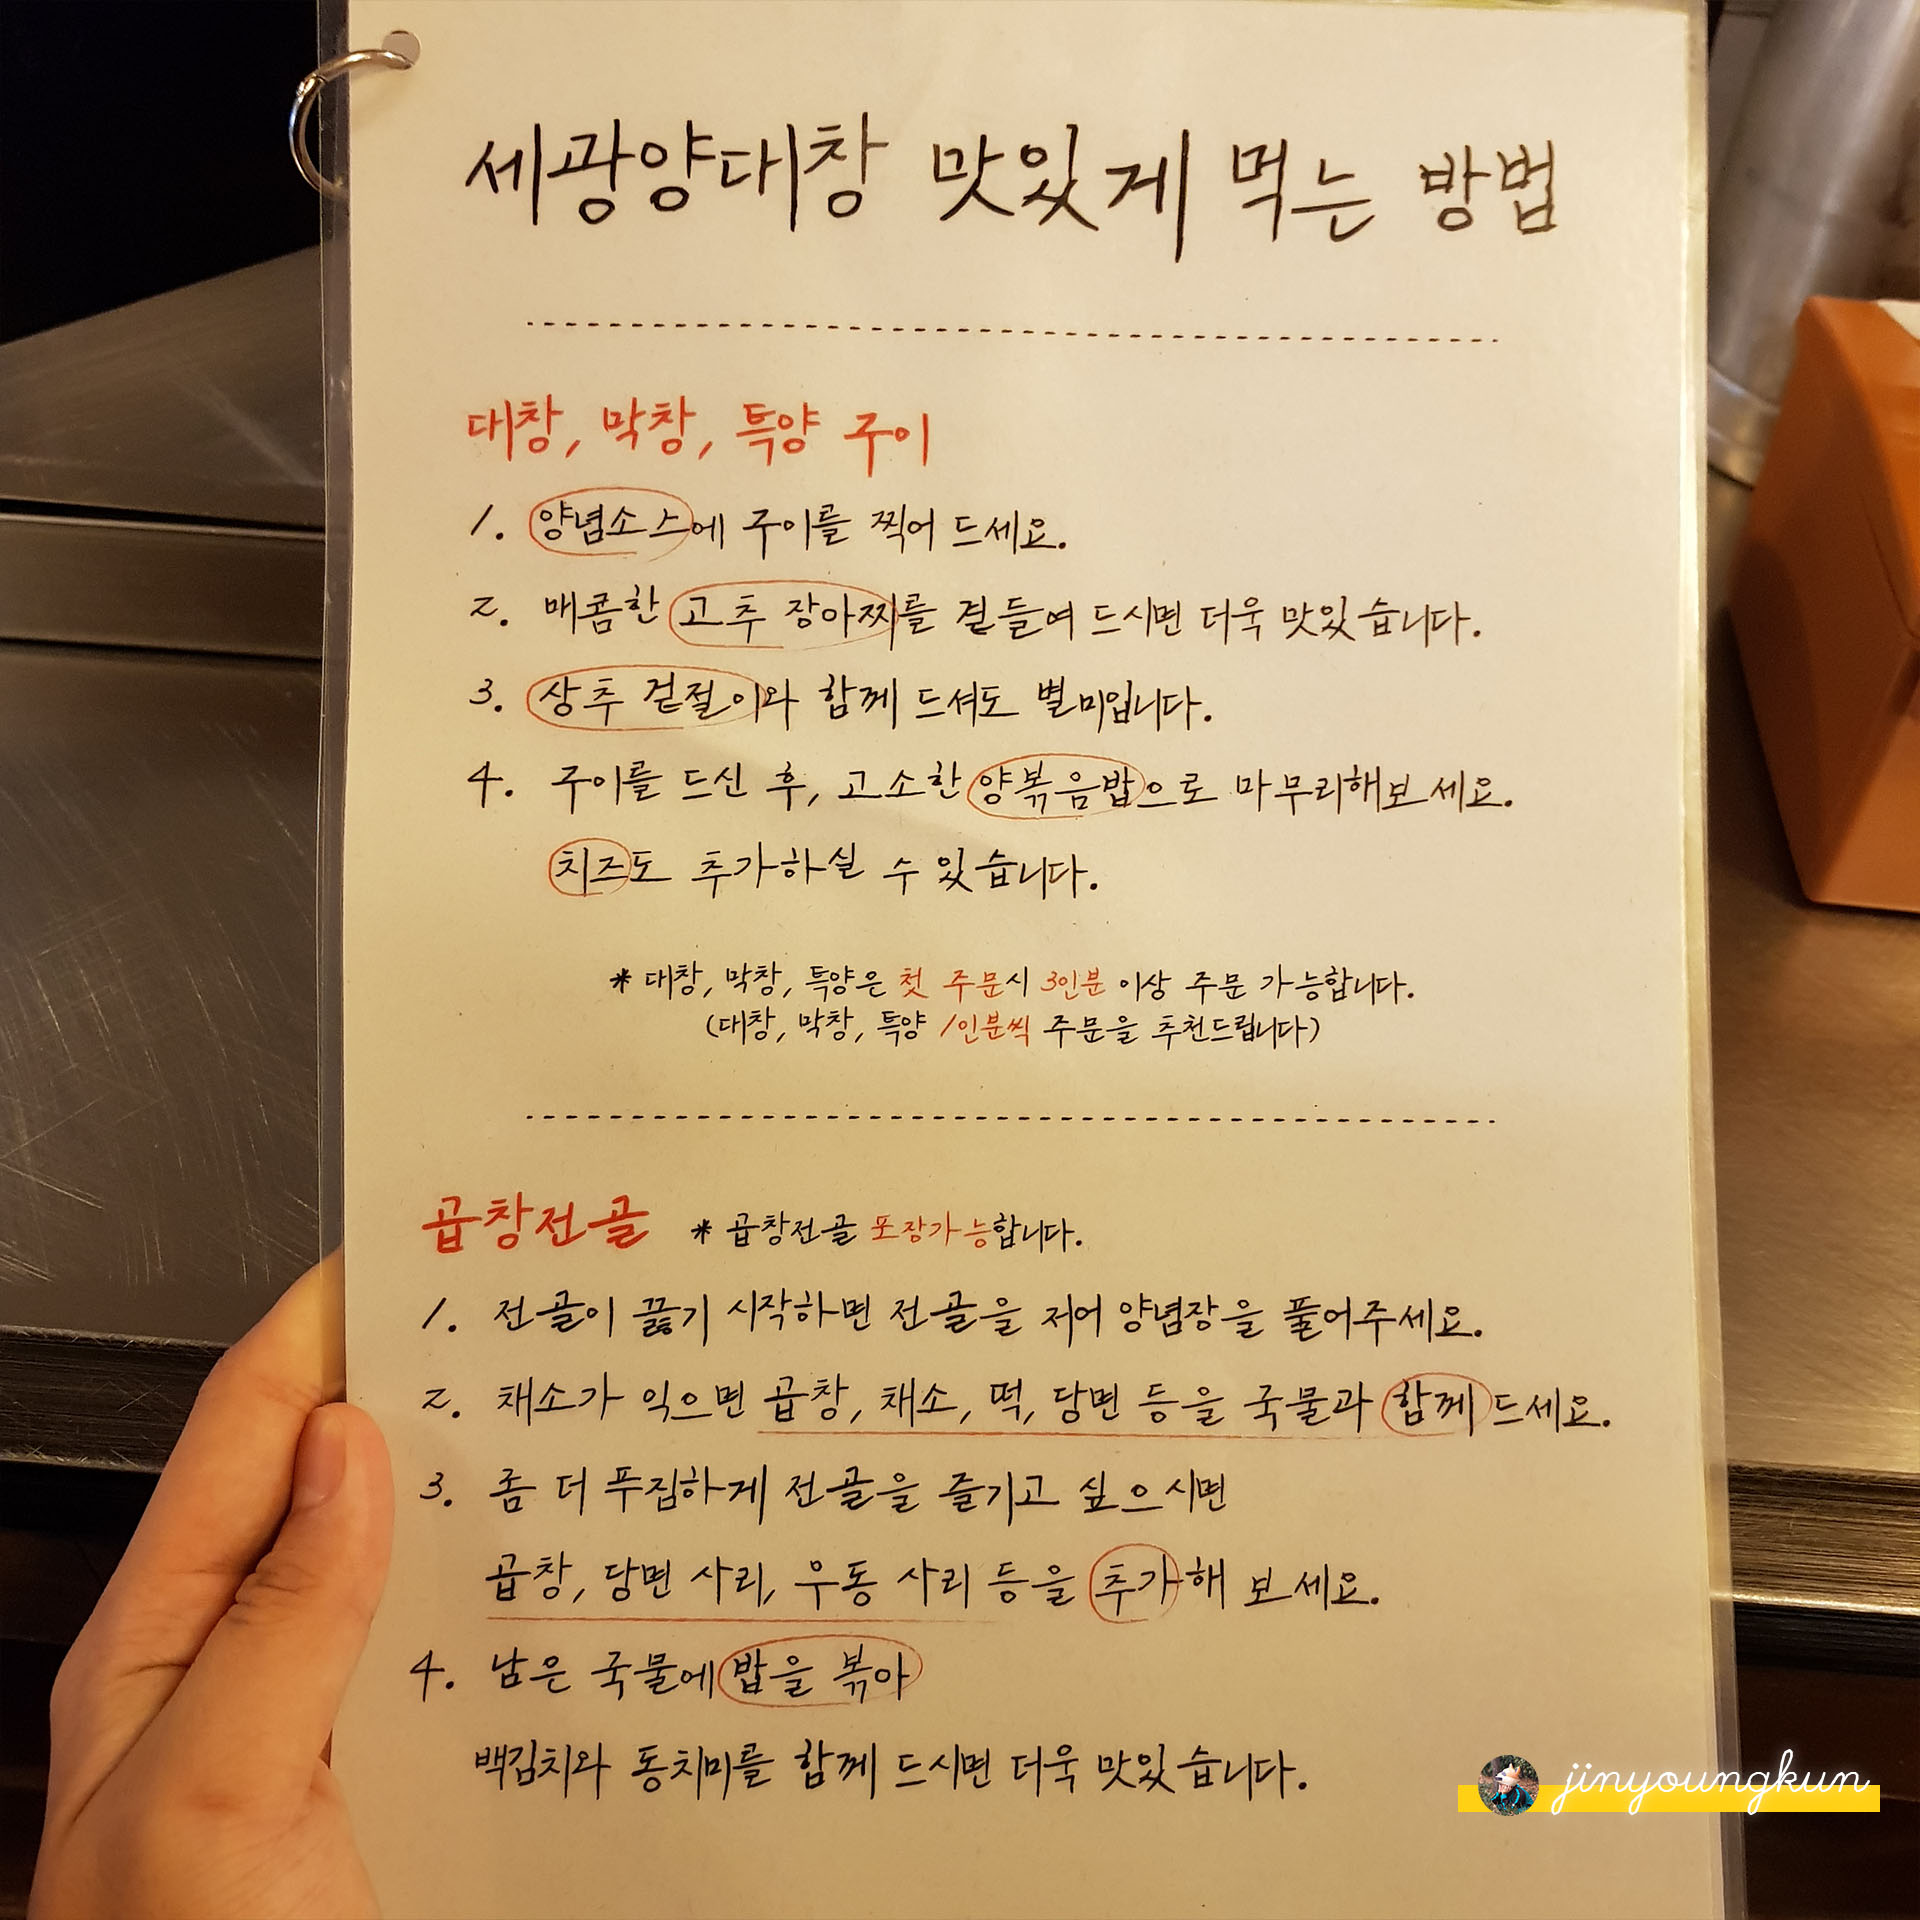 세광양대창 맛있게 먹는 방법
대창, 막창, 특양 구이
1. 양념소스에 구이를 찍어 드세요.
2. 매콤한 고추 장아찌를 곁들여 드시면 더욱 맛있습니다.
3. 상추 겉절이와 함께 드셔도 별미입니다.
4. 구이를 드신 후, 고소한 양볶음밥으로 마무리해보세요.
치즈도 추가하실 수 있습니다.
* 대창, 막창, 특양은 첫 주문시 3인분 이상 주문 가능합니다.
(대창, 막창, 특양 1인분씩 주문을 추천드립니다)
곱창전골 * 곱창전골 포장가능합니다.
1. 전골이 끓기 시작하면 전골을 저어 양념장을 풀어주세요.
2. 채소가 익으면 곱창, 채소, 떡, 당면 등을 국물과 함께 드세요.
3. 좀 더 푸짐하게 전골을 즐기고 싶으시면
곱창, 당면 사리, 우동 사리 등을 추가해 보세요.
4. 남은 국물에 밥을 볶아
백김치와 동치미를 함께 드시면 더욱 맛있습니다.
jinyoungkun